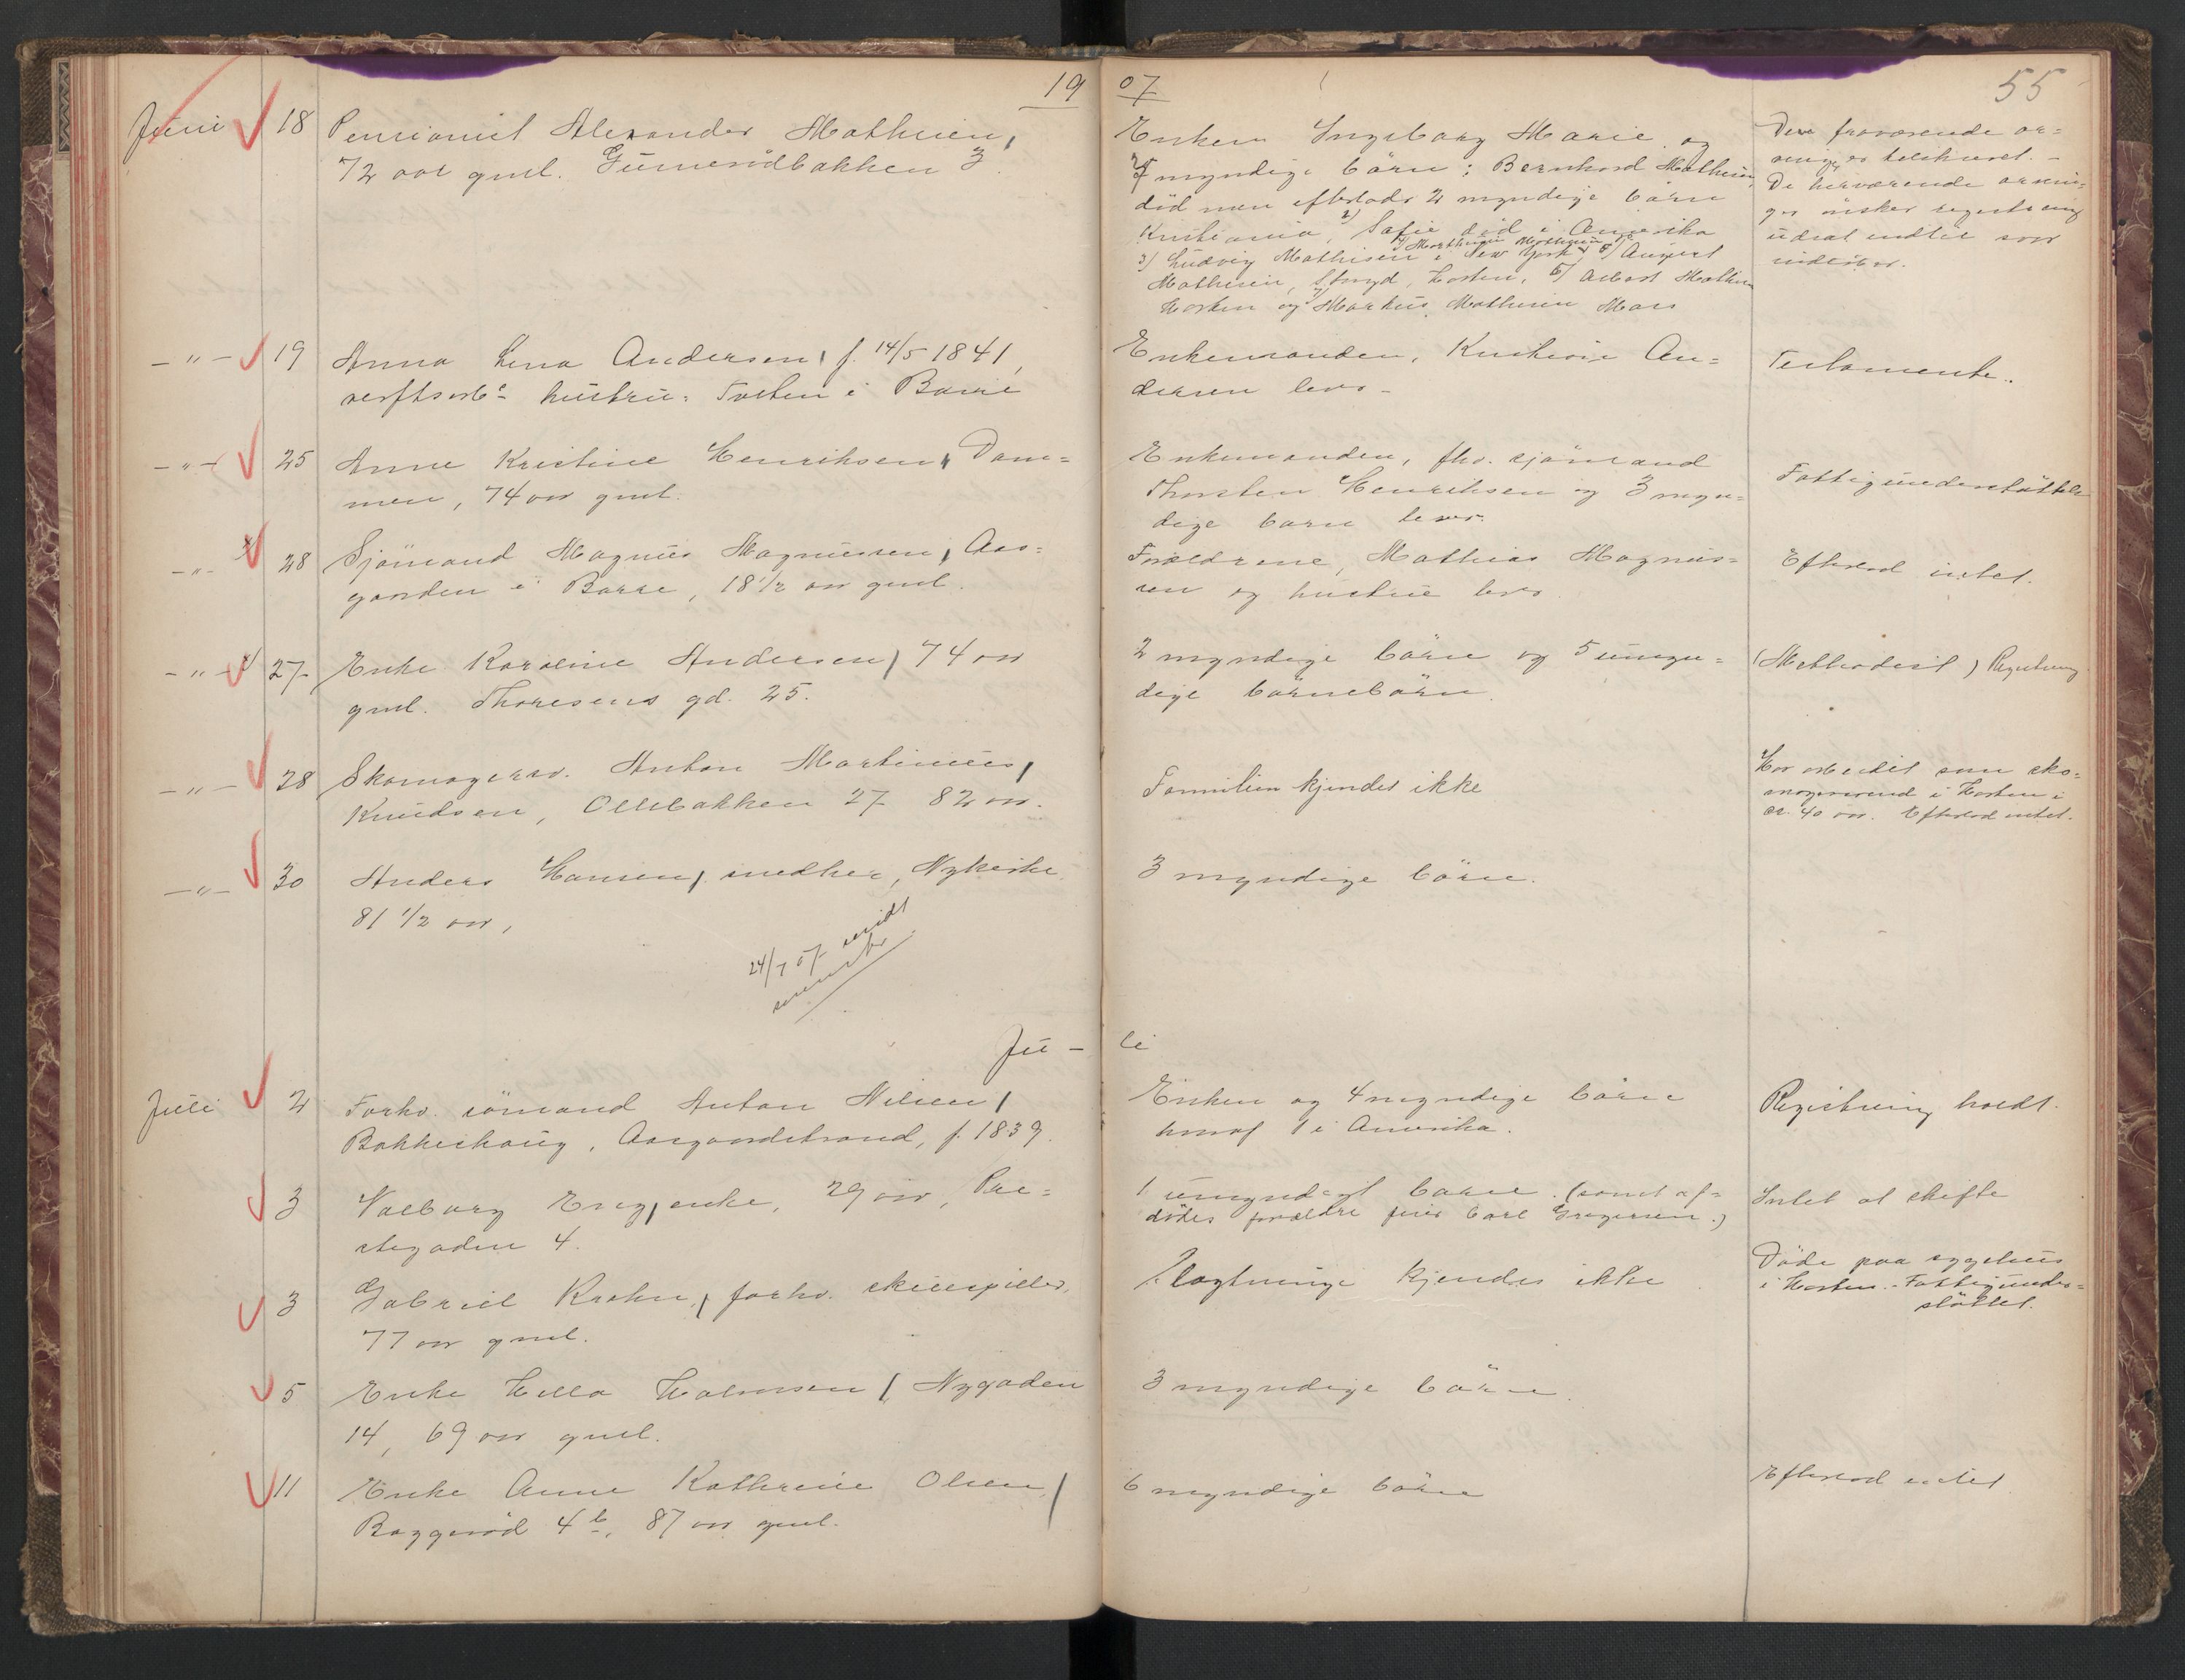 1907
55
Juni 18 Pensionist Alexander Mathisen,
72 aar gml. Gunnerödbakken 3.
Enken Ingeborg Marie og
7 myndige börn: Bernhard Mathisen,
död men efterlader 2 myndige börn
Kristiania, 2) Sofie död i Amerika
3) Ludvig Mathisen i New York 4) Marthinus Mathisen 5) August
Mathisen, Horten, 6) Albert Mathisen
Horten og 7) Markus Mathisen Moss
Den fraværende ar-
ving er tilskrevet. –
De herværende arvin-
ger önsker registrering
udsat indtil svar
indlöber.
– " – 19 Anna Lena Andersen, f. 14/5 1841,
verftsarbs hustru. Falken i Borre
Enkemanden, Kristian An-
dersen lever –
Testamente.
– " – 25 Anne Kristine Henriksen, Dam-
men, 74 aar gml.
Enkemanden, fhv. sjömand
Thorsten Henriksen og 3 myn-
dige barn lever.
Fattigunderstöttelse
– " – 28 Sjömand Magnus Magnussen, Aas-
gaarden i Borre, 18 1/2 aar gml.
Forældrene, Mathias Magnus-
sen og hustru lever.
Efterlod intet.
– " – 27 Enke Karoline Andersen, 74 aar
gml. Thoresens gd. 25.
2 myndige börn og 5 umyn-
dige börnebörn.
(Methodist) Registrering
– " – 28 Skomagersv. Anton Martinius,
Knudsen, Ollebakken 27 82 aar.
Familien kjendes ikke
Har arbeidet som sko-
magersvend i Horten i
ca. 40 aar. Efterlod intet.
– " – 30 Anders Hansen, snedker, Nykirke
81 1/2 aar,
3 myndige börn.
24/7 07
Ju – li
Juli 2 Forhv. sömand Anton Nilsen,
Bakkehaug, Aasgaardstrand, f. 1839.
Enken og 4 myndige börn
hvoraf 1 i Amerika.
Registrering holdt.
3 Valborg Eng, enke, 29 aar, Præ-
stegaden 4.
1 umyndigt barn. (samt af-
dödes forældre Carl Gregersen.)
Intet at skifte
3 Gabriel Krohn, forhv. skuespiller,
77 aar gml.
Slægtninge kjendes ikke
Döde paa sygehus
i Horten. – Fattigunder-
stöttet.
5 Enke Helle Halvorsen, Nygaden
14, 69 aar gml.
3 myndige börn.
11 Enke Anne Kathrine Olsen,
Baggeröd 4 b, 87 aar gml.
6 myndige börn
Efterlod intet